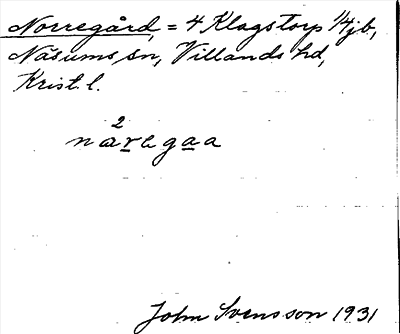 Norregård = 4 Klagstorp 1/4 jb,
Näsums sn, Villands hd,
Krist. l.
2
naregaa
John Svensson 1931